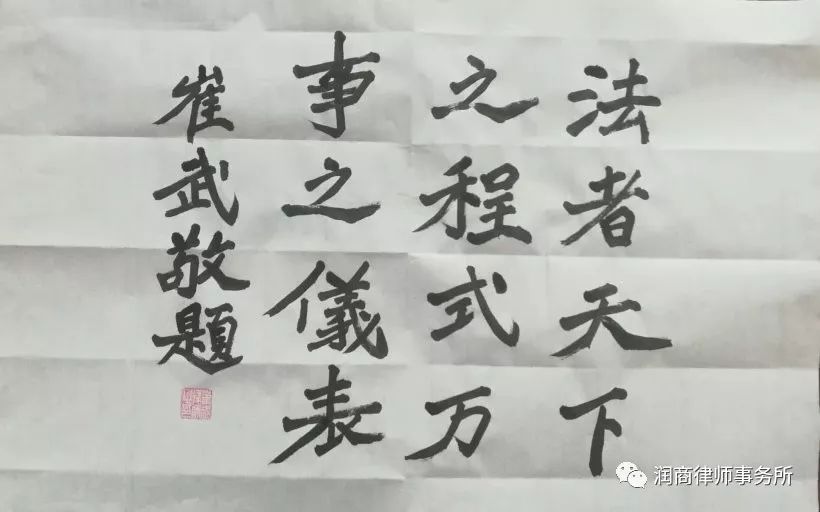 法者天下
之程式万
事之儀表
崔武敬題
润商律师事务所